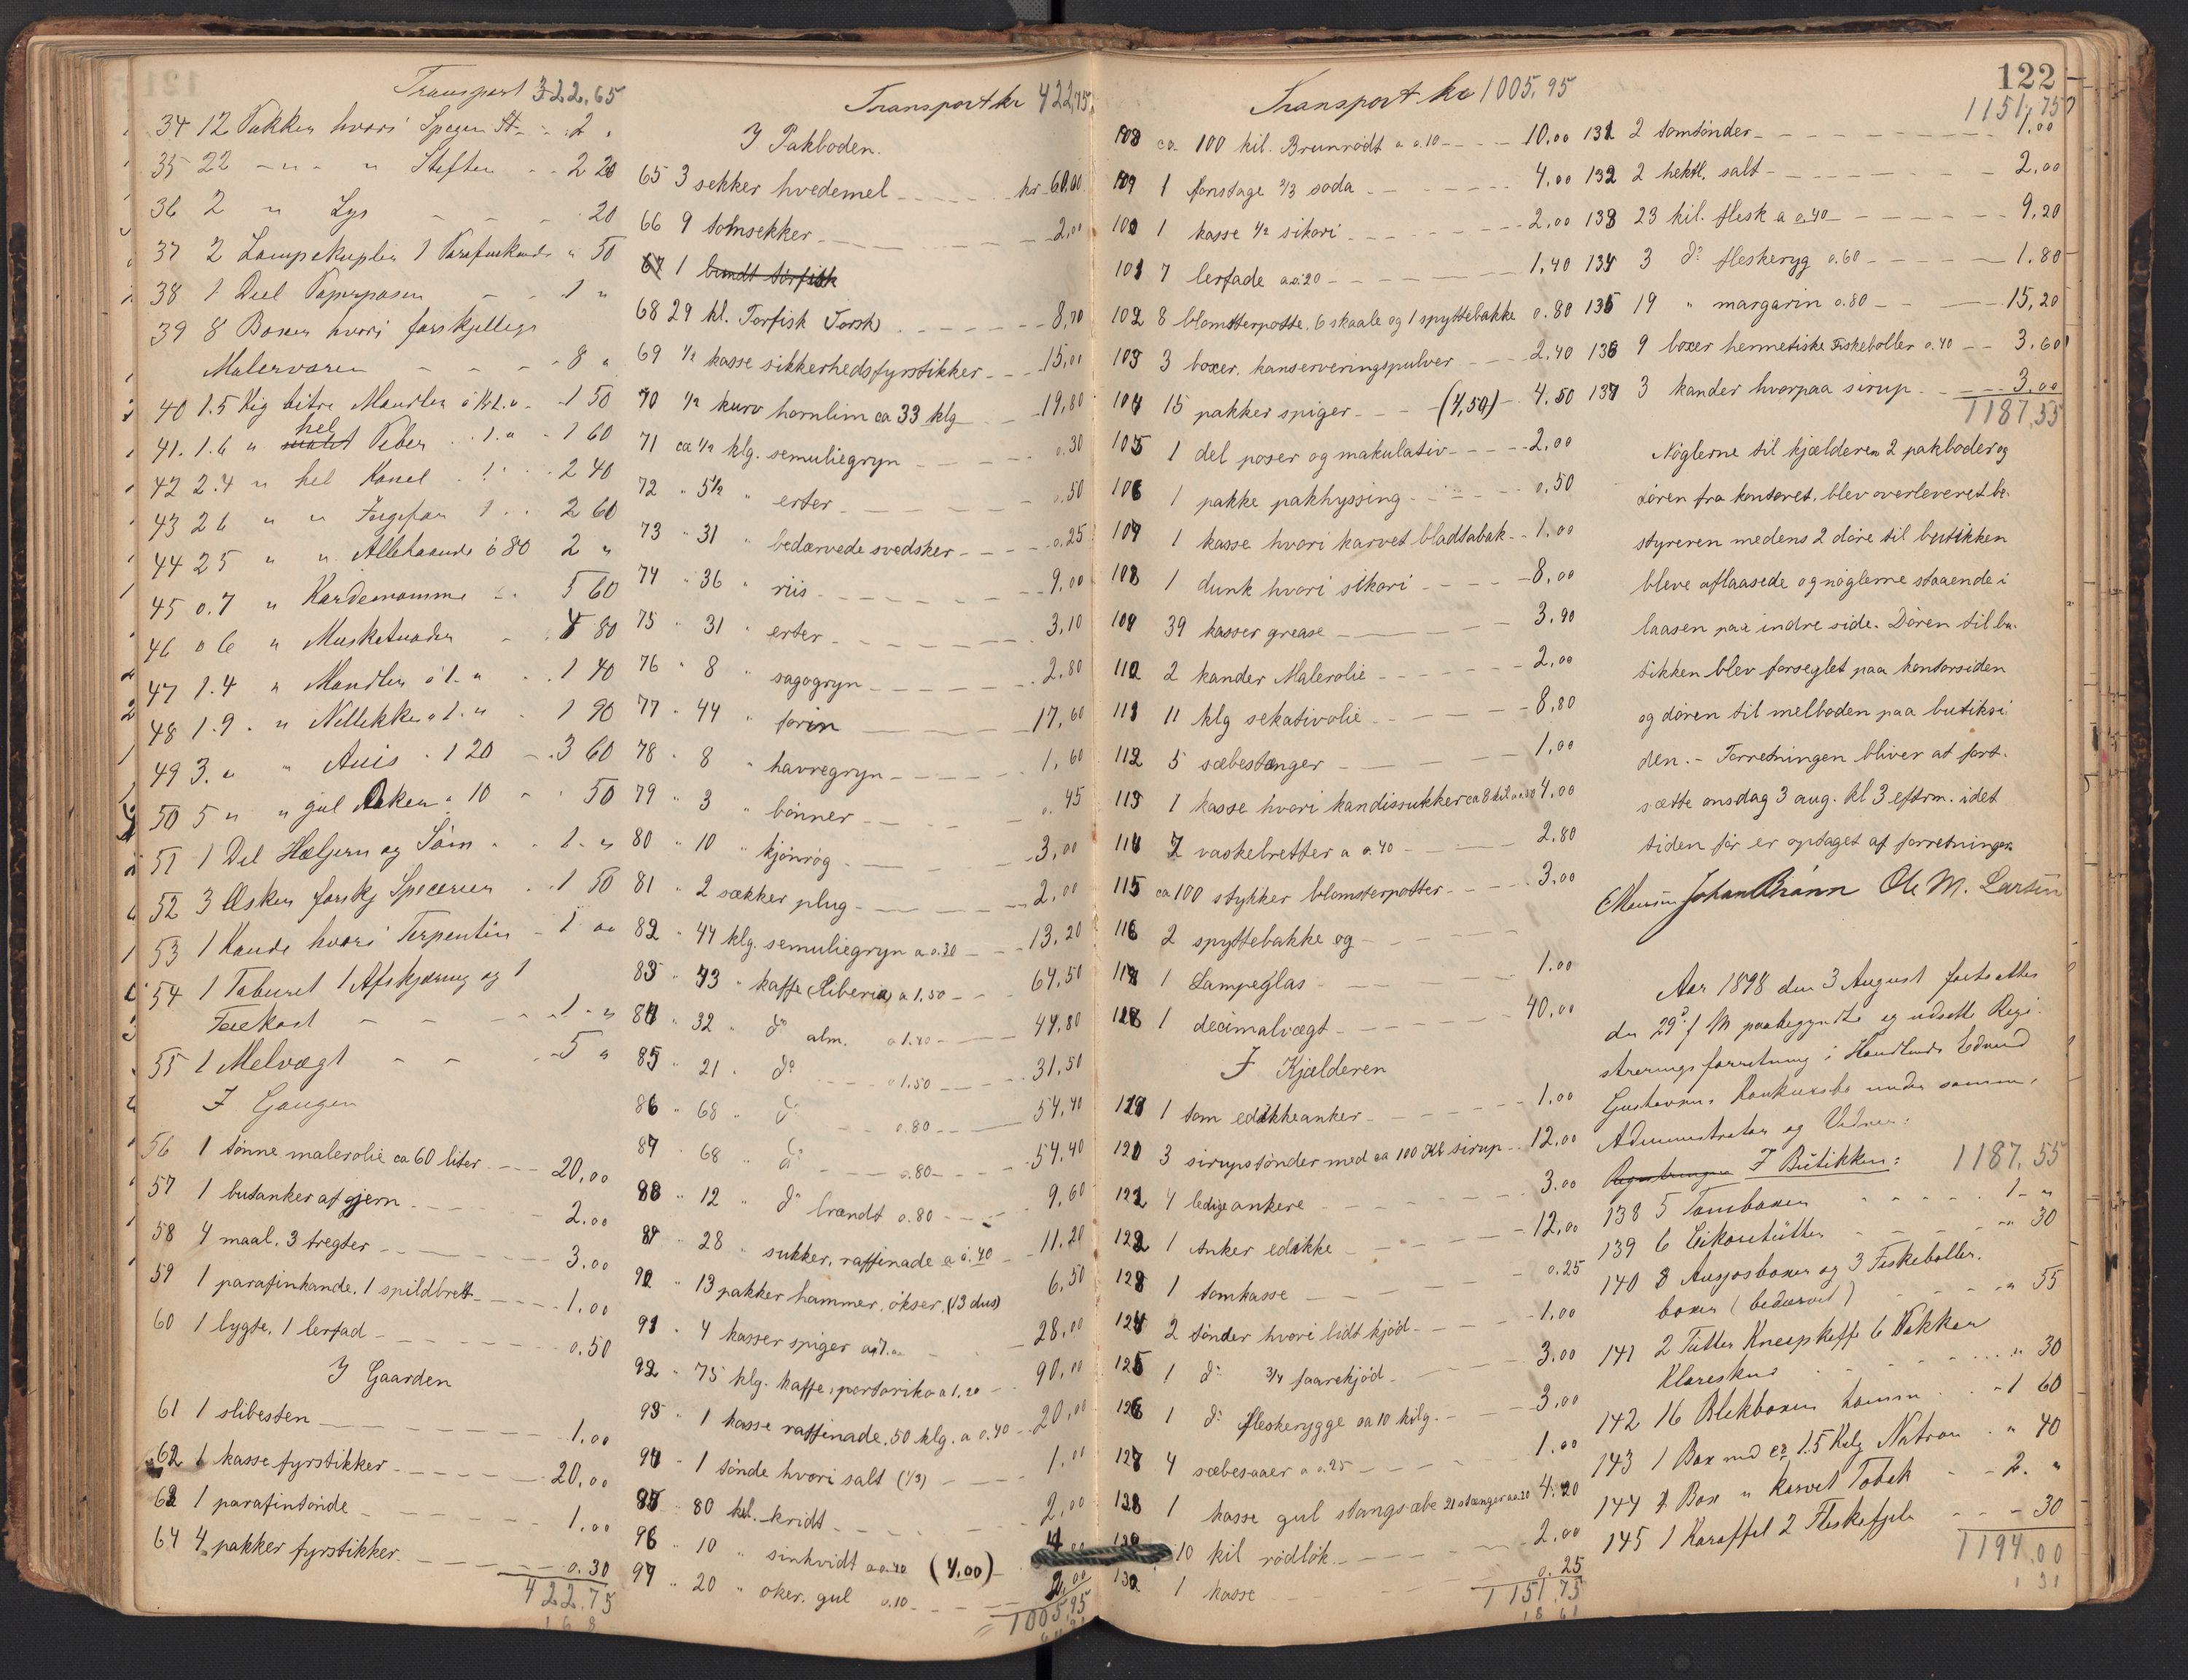 Transport 322.65
34 12 Pakker hvori Speger St - - 2 "
35 22 - " - " Stifter - - 2 20
36 2 " Lys - - - 20
37 2 Lampekupler 1 Parafinkande " 50
38 1 Deel Papirposer - - 1 "
39 8 Boxer hvori forskjellige
Malervarer - - - 8 "
40 1.5 Klg bitre Mandler à kr 1.0 - 1 50
41. 1.6 " hel Peber . . 1. " - 1 60
42 2.4 " hel Kanel . 1. . . 2 40
43 26 " " Ingefær 1 . . 2 60
44 25 " " Allehaande ó 80 2 "
45 0.7 " Kardemomme - . 5 60
46 0 6 " Musketnoder - . 4 80
47 1.4 " Mandler ó 1. " . . 1 40
48 1.9 . " Nellikke ó 1. " . 1 90
49 3. " " Anis . 1 20 - . 3 60
50 5 " " gul Oker " 10 - " 50
51 1 Del Hæljern og Söm . . 1 - "
52 3 Æsker forskj Specerier . . 1 50
53 1 Kande hvori Terpentin - 1 00
54 1 Taburet 1 Afskjæring og 1
Feiekost - - - - . 1 - "
55 1 Melvægt - - . - 5 "
I Gangen
56 1 tönne malerolie ca 60 liter - - - 20,00
57 1 butanker af gjern - - - - 2.00
58 4 maal. 3 tregter - - - - - 3.00
59 1 parafinkande. 1 spildbrett - - - - 1.00
60 1 lygte. 1 lerfad - - - - - 0.50
I Gaarden
61 1 slibesten - - - - - 1.00
62 1 kasse fyrstikker - - - - - 20,00
63 1 parafintönde - - - - - 1,00
64 4 pakker fyrstikker - - - - 0.30
422.75
168
Transport kr 422,75.
I Pakboden.
65 3 sekker hvedemel - - - - - kr. 60.00
66 9 tomsekker - - - - - 2,00
67 1 bundt törfisk
68 29 kl. Torfisk (Torsk) - - - - - 8,70
69 ½ kasse sikkerhedsfyrstikker - - - 15,00
70 ½ kurv hornlim ca 33 klg - - 19,80
71 ca ½ klg. semuliegryn - - - - 0.30
72 " 5½ " erter - - - - - 0.50
73 " 31 " bedærvede svedsker - - - - 0.25
74 " 36 " riis - - - - - 9.00
75 " 31 " erter - - - - - 3,10
76 " 8 " sagogryn - - - - - 2.80
77 " 44 " forin - - - - - 17,60
78 " 8 " havregryn - - - - - 1.60
79 " 3 " bönner - - - - - 0.45
80 " 10 " kjönrög - - - - - 3,00
81 " 2 sækker plug - - - - - 2,00
82 " 44 klg. semuliegryn a 0.30 - - 13.20
83 " 43 " kaffe (Liberia) a 1,50 - - 64,50
84 " 32 " do alm. a 1.40 - - - 44,80
85 " 21 " do - - - - a 1.50 - - - 31.50
86 " 68 " do - - 0.80 - - - 54.40
87 " 68 " do - - - 0.80 - - - 54.40
88 " 12 " do brændt 0.80 - - - 9.60
89 " 28 " sukker, raffinade a 0.40 - 11.20
90 " 13 pakker hammer, ökser. (13 dus) 6.50
91 " 4 kasser spiger a 7.00 - - 28,00
92 " 75 klg. kaffe, portoriko a 1.20 - 90,00
93 " 1 kasse raffinade. 50 klg. a 0.40 - 20,00
94 " 1 tönde hvori salt (⅓) - - - 1,00
95 " 80 kil. kridt - - - - - 2,00
96 " 10 " sinkhvidt a 0.40 (4.00) - 4,00
97 " 20 " oker. gul 0.10 - - - - 2,00
1005,95
122
Transport kr 1005,95
108 ca. 100 kil. Brunrödt a 0.10 - - - - 10.00
109 1 fonstage ⅔ soda - - - - - 4.00
100 1 kasse ½ sikori - - - - - 2.00
101 7 lerfade a 0.20 - - - - - 1,40
102 8 blomsterpotte. 6 skaale og 1 spyttebakke 0.80
103 3 boxer. kanserveringspulver - - - 2.40
104 15 pakker spiger - - - (4,50) - 4.50
105 1 del poser og makulativ - - - - 2,00
106 1 pakke pakhyssing - - - - 0,50
107 1 kasse hvori karvet bladtabak - - 1.00
108 1 dunk hvori sikori - - - - 8,00
109 39 kasser grease - - - - 3.90
110 2 kander Malerolie - - - - - 2,00
111 11 klg sekativolie - - - - - 8,80
112 5 sæbestænger - - - - 1,00
113 1 kasse hvori kandissukker ca 8 kil a 0.50 4.00
114 7 vaskebretter a 0.40 - - - - 2.80
115 ca 100 stykker blomsterpotter - - - - 3.00
116 2 spyttebakke og - - - - -
117 1 Lampeglas - - - - - 1.00
118 1 decimalvægt - - - - - 40,00
I Kjælderen
119 1 tom edikkeanker - - - - - 1.00
120 3 sirupstönder med ca 100 Kl. sirup - - 12.00
121 4 ledige ankere - - - - 3.00
122 1 anker edikke - - - - - 12,00
123 1 tomkasse - - - - 0.25
124 2 tönder hvori lidt kjöd - - - - 1.00
125 1 do ¾ faarekjöd - - - 3.00
126 1 do fleskerygge ca 10 kilg. - - - 3,00
127 4 sæbesaaer a 0.25 - - - - 1.00
128 1 kasse gul stangsæbe 21 stænger a 0.20 4.20
129 10 kil rödlök - - - - - 2.00
130 1 kasse - - - 0.25
1151,75
1151,75
131 2 tomtönder - - - - - 1,00
132 2 hektl. salt - - - - - 2,00
133 23 kil. flesk a 0.40 - - - - - 9,20
134 3 do fleskeryg 0.60 - - - - 1.80
135 19 " margarin 0.80 - - - - 15,20
136 9 boxer hermetiske Fiskeboller 0.40 - - 3.60
137 3 kander hvorpaa sirup - - - - 3,00
1187,55
Nöglerne til kjælderen 2 pakboder og
dören fra kontoret. blev overleveret be-
styreren medens 2 döre til butikken
bleve aflaasede og nöglerne staaende i
laasen paa indre side. Dören til bu-
tikken blev forseglet paa kontorsiden
og dören til melboden paa butiksi-
den. - Forretningen bliver at fort-
sætte onsdag 3 aug. kl 3 efterm. idet
tiden för er optaget af forretninger.
Johan Brånn Ole M. Larsen
Aar 1898 den 3 August fortsattes
den 29de f M paabegyndte og udsatte Regi-
streringsforretning i Handlende Edvard
Gustavsens Konkursbo under samme
Administrator og Vidner:
Registreringen I Butikken: 1187.55
138 5 Tomboxer - - - - - 1 - "
139 6 Cikoritütter - - - - - " 30
140 8 Ansjosboxer og 3 Fiskeboller.
boxer (bedærvet) - - - " 55
141 2 Tütter Kneipkaffe 6 Pakker
Klareskind - - - - - " 30
142 16 Blikboxer tomme . . - 1 60
143 1 Box med ca 1.5 Kilg Natron . " 40
144 1 Box " Karvet Tobak - - 2. "
145 1 Karaffel 2 Fleskefjele - - - 30
1194.00